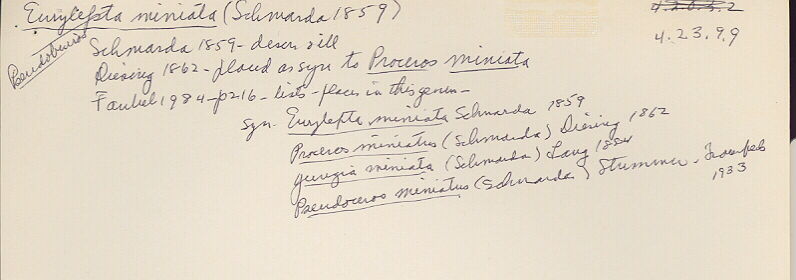 Eurylepta miniata (Schmarda 1859)
4.2.3.9.9
Pseudobiceros
Schmarda 1859 - descr & ill
Diesing 1862 - placed as syn to Proceros miniata
Faubel 1984 - p216 - lists - places in this genus -
syn. Eurylepta miniata Schmarda 1859
Proceros miniatus (Schmarda) Diesing 1862
miniata (Schmarda) Lang 1884
Pseudoceros miniatus (Schmarda) Stummer-Traunfels
1933